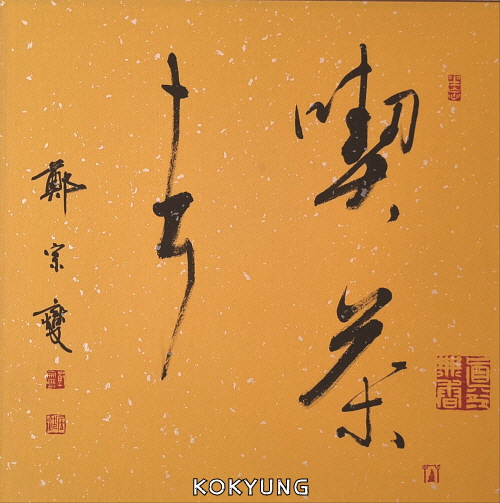 喫茶
去
鄭宗燮
KOKYUNG